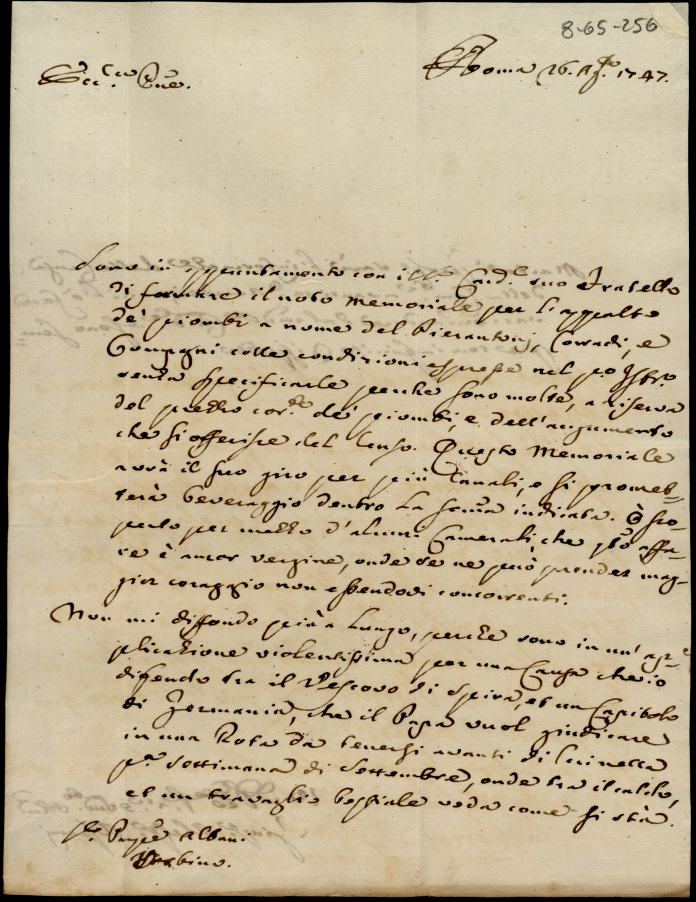 8-65-256
Roma 26. Ag.to 1747.
Ecc.za
Sono in appuntamento con il Sig.r Card.le suo Fratello
di formare il noto Memoriale per l'appalto
de' piombi a nome del Pierantonj, Corradi, e
Compagni colle condizioni espresse nel
senza specificarle perche sono molte, a riserva
del prezzo cor.te de' piombi, e dell'augumento
che si offerisce del Censo. Questo Memoriale
avrà il suo giro per più Canali, e si promet-
terà beveraggio dentro la somã indicata. È sco-
perto per mezzo d'alcuni Camerali, che affa-
re è ancor vergine, onde se ne può prender mag-
gior coraggio non essendovi concorrenti.
Non mi diffondo più a lungo, perche sono in un' ap-
plicazione violentissima per una Causa che io
difendo tra il Vescovo di Spira, et un Capitolo
di Germania, che il Papa vuol giudicare
in una Rota da tenersi avanti di lui nella
p.a settimana di Settembre, onde tra il caldo,
et un travaglio bestiale veda come si stà.
Albani
Urbino.